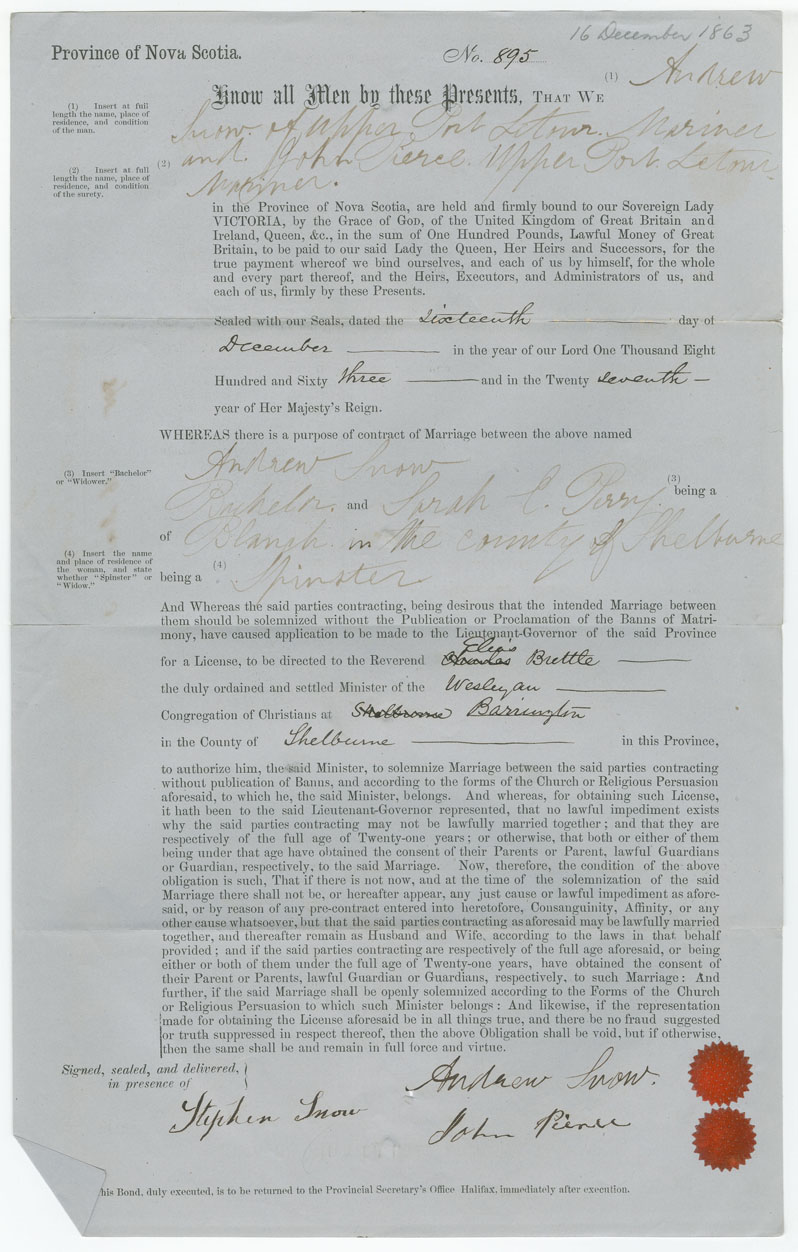 16 December 1863
Province of Nova Scotia.
No. 895
(1) Insert at full
length the name, place of
residence, and condition
of the man.
Know all Men by these Presents, THAT WE (1) Andrew
Snow. of Upper Port Letour. Mariner
(2) Insert at full
length the name, place of
residence, and condition
of the surety.
(2) and. John Pierce. Upper Port Letour
Mariner.
in the Province of Nova Scotia, are held and firmly bound to our Sovereign Lady
VICTORIA, by the Grace of GOD, of the United Kingdom of Great Britain and
Ireland, Queen, &c., in the sum of One Hundred Pounds, Lawful Money of Great
Britain, to be paid to our said Lady the Queen, Her Heirs and Successors, for the
true payment whereof we bind ourselves, and each of us by himself, for the whole
and every part thereof, and the Heirs, Executors, and Administrators of us, and
each of us, firmly by these Presents.
Sealed with our Seals, dated the Sixteenth day of
December in the year of our Lord One Thousand Eight
Hundred and Sixty three and in the Twenty seventh
year of Her Majesty's Reign.
WHEREAS there is a purpose of contract of Marriage between the above named
Andrew Snow
(3) Insert "Bachelor"
or "Widower."
(3) being a
Bachelor. and Sarah C. Perry
of Blanch. in the county of Shelburne
(4) Insert the name
and place of residence of
the woman, and state
whether "Spinster" or
"Widow."
being a (4) Spinster
And Whereas the said parties contracting, being desirous that the intended Marriage between
them should be solemnized without the Publication or Proclamation of the Banns of Matri-
mony, have caused application to be made to the Lieutenant-Governor of the said Province
for a License, to be directed to the Reverend Charles Elias Brettle
the duly ordained and settled Minister of the Wesleyan
Congregation of Christians at Shelbrowne Barrington
in the County of Shelburne in this Province,
to authorize him, the said Minister, to solemnize Marriage between the said parties contracting
without publication of Banns, and according to the forms of the Church or Religious Persuasion
aforesaid, to which he, the said Minister, belongs. And whereas, for obtaining such License,
it hath been to the said Lieutenant-Governor represented, that no lawful impediment exists
why the said parties contracting may not be lawfully married together; and that they are
respectively of the full age of Twenty-one years; or otherwise, that both or either of them
being under that age have obtained the consent of their Parents or Parent, lawful Guardians
or Guardian, respectively, to the said Marriage. Now, therefore, the condition of the above
obligation is such, That if there is not now, and at the time of the solemnization of the said
Marriage there shall not be, or hereafter appear, any just cause or lawful impediment as afore-
said, or by reason of any pre-contract entered into heretofore, Consanguinity, Affinity, or any
other cause whatsoever, but that the said parties contracting as aforesaid may be lawfully married
together, and thereafter remain as Husband and Wife, according to the laws in that behalf
provided; and if the said parties contracting are respectively of the full age aforesaid, or being
either or both of them under the full age of Twenty-one years, have obtained the consent of
their Parent or Parents, lawful Guardian or Guardians, respectively, to such Marriage: And
further, if the said Marriage shall be openly solemnized according to the Forms of the Church
or Religious Persuasion to which such Minister belongs: And likewise, if the representation
made for obtaining the License aforesaid be in all things true, and there be no fraud suggested
or truth suppressed in respect thereof, then the above Obligation shall be void, but if otherwise,
then the same shall be and remain in full force and virtue.
Signed, sealed, and delivered,
in presence of
Andrew Snow.
Stephen Snow
John Pierce
his Bond, duly executed, is to be returned to the Provincial Secretary's Office Halifax, immediately after execution.